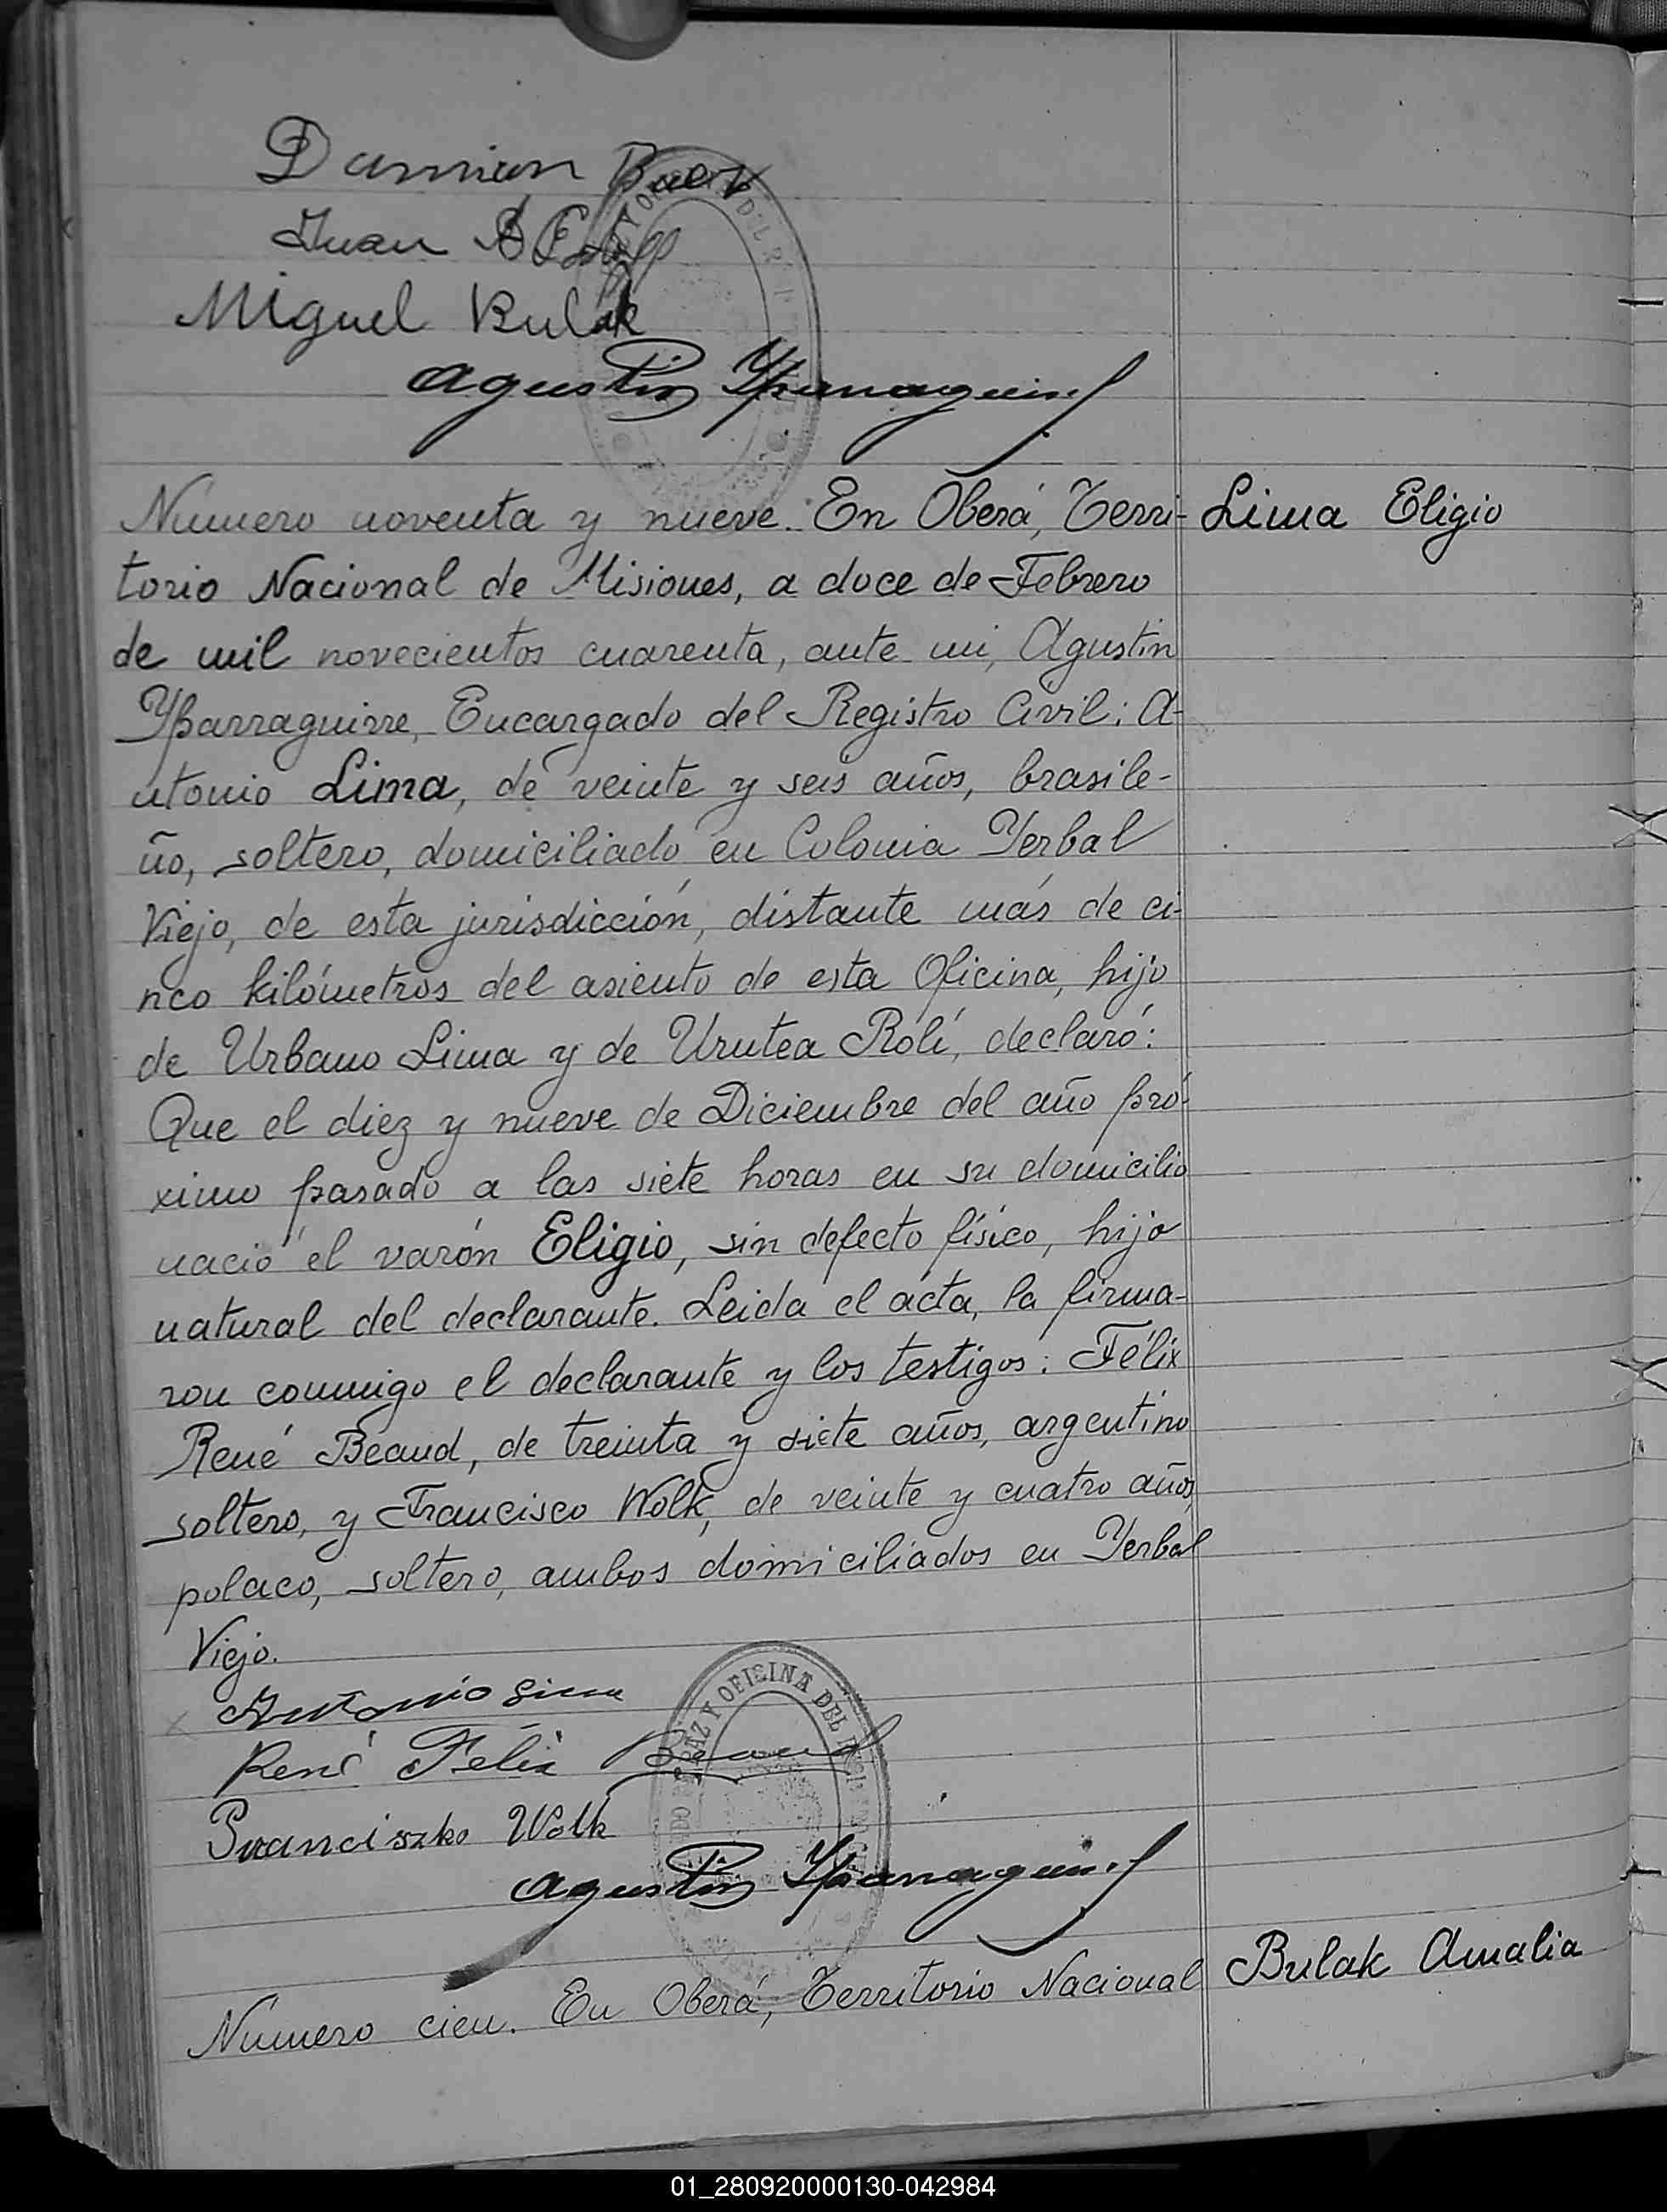 Damian
Juan
Miguel Bulak
Agustin Yparraguirre
Numero noventa y nueve. En Oberá, Terri- Lima Eligio
torio Nacional de Misiones, a doce de Febrero
de mil novecientos cuarenta, ante mi, Agustin
Yparraguirre, Encargado del Registro Civil: A-
ntonio Lima, de veinte y seis años, brasile-
ño, soltero, domiciliado en Colonia Yerbal
Viejo, de esta jurisdicción, distante más de ci-
nco kilómetros del asiento de esta Oficina, hijo
de Urbano Lima y de Urutea Rolí, declaró:
Que el diez y nueve de Diciembre del año pró-
ximo pasado a las siete horas en su domicilio
nació el varón Eligio, sin defecto físico, hijo
natural del declarante. Leida el acta, la firma-
ron conmigo el declarante y los testigos: Félix
René Beaud, de treinta y siete años, argentino
soltero, y Francisco Wolk, de veinte y cuatro años,
polaco, soltero, ambos domiciliados en Yerbal
Viejo.
Antonio Lima
René Félix Beaud
PAZ Y OFICINA DEL
Franciszko Wolk
Agustin Yparraguirre
Número cien. En Oberá, Territorio Nacional Bulak Amalia
01_280920000130-042984